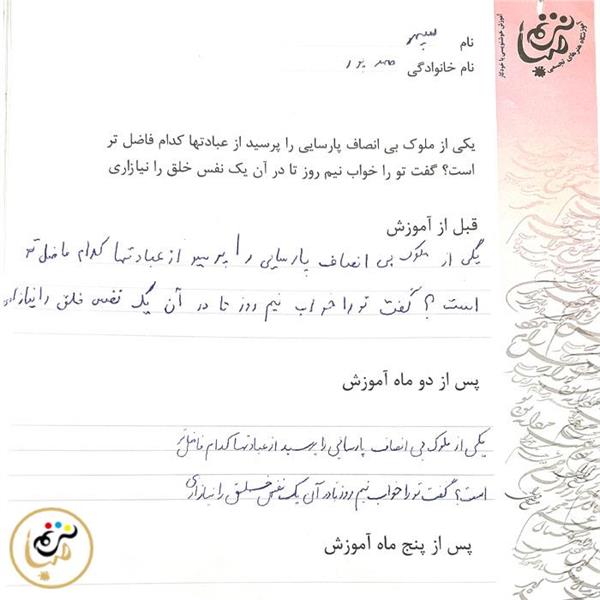 آموزشگاه هنرهای تجسمی
آموزش خوشنویسی با خودکار
نام سپهر
نام خانوادگی
یکی از ملوک بی انصاف پارسایی را پرسید از عبادتها کدام فاضل تر
است؟ گفت تو را خواب نیم روز تا در آن یک نفس خلق را نیازاری
قبل از آموزش
یکی از ملوک بی انصاف پارسایی را پرسید از عبادتها کدام فاضل تر
است؟ گفت تو را خواب نیم روز تا در آن یک نفس خلق را نیازاری
پس از دو ماه آموزش
یکی از ملوک بی انصاف پارسایی را پرسید از عبادتها کدام فاضل تر
است؟ گفت تو را خواب نیم روز تا در آن یک نفس خلق را نیازاری
پس از پنج ماه آموزش